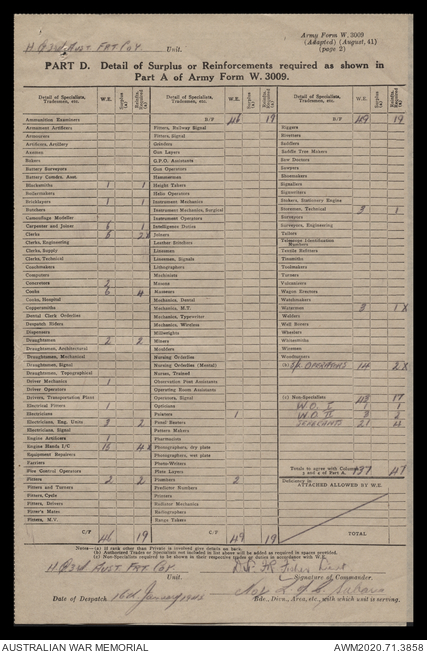 Army Form W. 3009
(Adapted) (August, 41)
(page 2)
Unit.
PART D. Detail of Surplus or Reinforcements required as shown in
Part A of Army Form W. 3009.
Detail of Specialists, Tradesmen, etc. W.E. Detail of Specialists, Tradesmen, etc. W.E. Detail of Specialists, Tradesmen, etc. W.E.
Ammunition Examiners B/F 46 19 B/F 49 19
Armament Artificers Fitters, Railway Signal Riggers
Armourers Fitters, Signal Rivetters
Artificers, Artillery Grinders Saddlers
Axemen Gun Layers Saddle Tree Makers
Bakers G.P.O. Assistants Saw Doctors
Battery Surveyors Gun Operators Sawyers
Battery Comdrs. Asst. Hammermen Shoemakers
Blacksmiths 1 1 Height Takers Signallers
Boilermakers Helio Operators Signwriters
Bricklayers 1 1 Instrument Mechanics Stokers, Stationary Engine
Butchers Instrument Mechanics, Surgical Storemen, Technical 3 1
Camouflage Modeller Instrument Operators Surveyors
Carpenter and Joiner 6 1 Intelligence Duties Surveyors, Engineering
Clerks 5 2 Joiners Tailors
Clerks, Engineering Leather Stitchers Telephone Identification Numbers
Clerks, Supply Linesmen Textile Refitters
Clerks, Technical Linesmen, Signals Tinsmiths
Coachmakers Lithographers Toolmakers
Computers Machinists Turners
Concretors 2 Masons Vulcanizers
Cooks 6 4 Masseurs Wagon Erectors
Cooks, Hospital Mechanics, Dental Watchmakers
Coppersmiths Mechanics, M.T. Waterman 3 1 X
Dental Clerk Orderlies Mechanics, Typewriter Welders
Despatch Riders Mechanics, Wireless Well Borers
Dispensers Millwrights Wheelers
Draughtsmen 2 2 Miners Whitesmiths
Draughtsmen, Architectural Moulders Wiremen
Draughtsmen, Mechanical Nursing Orderlies Woodturners
Draughtsmen, Signal Nursing Orderlies (Mental) OPERATORS 14 2 X
Draughtsmen, Topographical Nurses, Trained
Driver Mechanics 1 Observation Post Assistants
Driver Operators Operating Room Assistants
Drivers, Transportation Plant Operators, Signal (c) Non-Specialists 17
Electrical Fitters 1 Opticians W.O. I 1 1
Electricians Painters 1 W.O. II 3 2
Electricians, Eng. Units 3 2 Panel Beaters SERGEANTS 21 4
Electricians, Signal Pattern Makers
Engine Artificers 1 Pharmacists
Engine Hands I/C 16 4 X Photographers, dry plate
Equipment Repairers Photographers, wet plate
Farriers Photo-Writers
Fire Control Operators Plate Layers
Fitters 2 2 Plumbers 2
Fitters and Turners Predictor Numbers
Fitters, Cycle Printers
Fitters, Drivers Publisher Mechanics
Fitter's Mates Radiographers
Fitters, M.V. Range Takers
Totals to agree with Columns 2 and 9 of Part A. 137 47
Deficiency in
ATTACHED ALLOWED BY W.E.
TOTAL
C/F 46 19 C/F 49 19
Note—(a) if rank other than Private is involved give details on back.
(b) Authorized Trades or Specialists not included in list above will be added as required in spaces provided.
(c) Non-Specialists required to be shown in their respective trades or duties in accordance with W.E.
Unit.
Signature of Commander.
Date of Despatch 16th January 1942
Bde., Divn., Area, etc., with which unit is serving.
AUSTRALIAN WAR MEMORIAL
AWM2020.71.3858